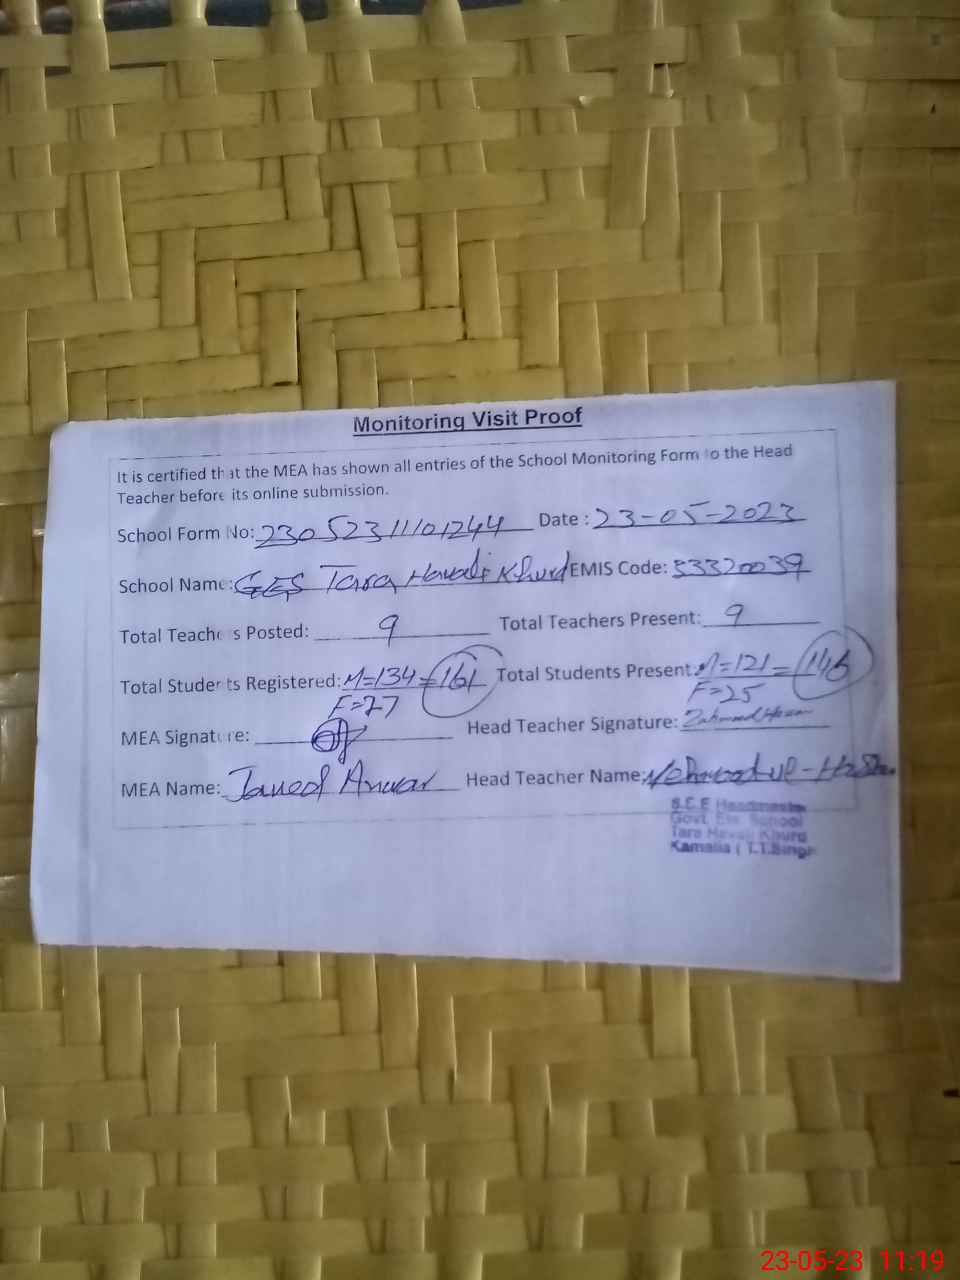 Monitoring Visit Proof
It is certified that the MEA has shown all entries of the School Monitoring Form to the Head
Teacher before its online submission.
School Form No: 23052311101244 Date : 23-05-2023
School Name: GES Tara Havali Khurd EMIS Code: 33320039
Total Teachers Posted: 9 Total Teachers Present: 9
Total Students Registered: M=134=161 Total Students Present: M=121=146
F=27 F=25
MEA Signature: Head Teacher Signature:
MEA Name: Javeed Anwar Head Teacher Name:
S.E.E Headmaster
Govt. Ele. School
Tara Havali Khurd
Kamalia ( T.T.Singh
23-05-23 11:19